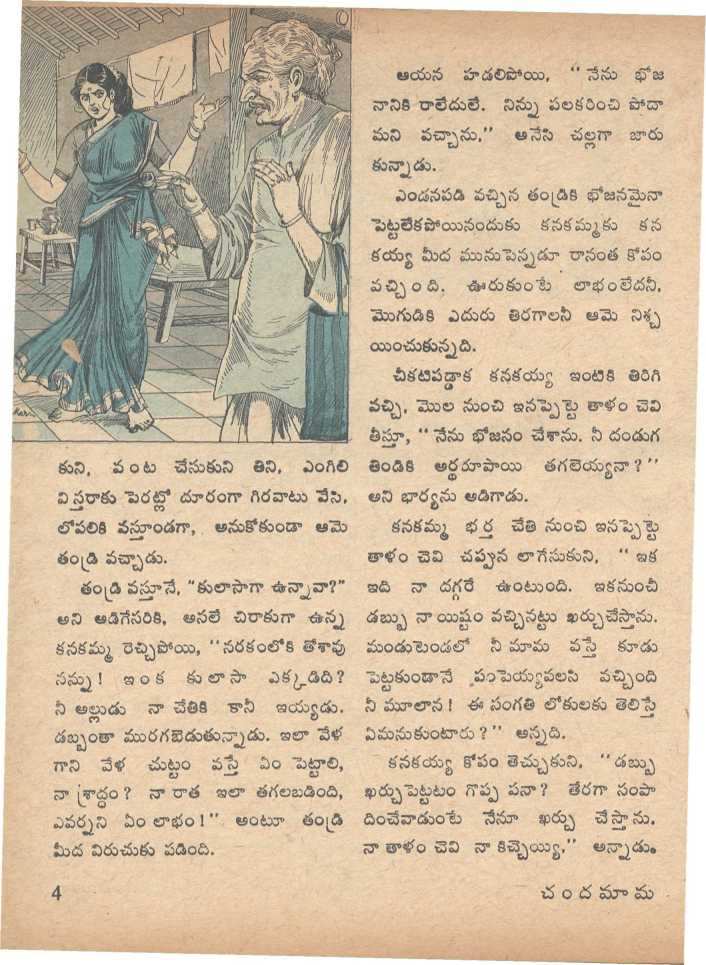 కుని, వంట చేసుకుని తిని, ఎంగిలి
విస్తరాకు పెరట్లో దూరంగా గిరవాటు వేసి,
లోపలికి వస్తూండగా, అనుకోకుండా ఆమె
తండ్రి వచ్చాడు.
తండ్రి వస్తూనే, "కులాసాగా ఉన్నావా?"
అని అడిగేసరికి, అసలే చిరాకుగా ఉన్న
కనకమ్మ రెచ్చిపోయి, "నరకంలోకి తోశావు
నన్ను! ఇంక కులాసా ఎక్కడిది?
నీ అల్లుడు నా చేతికి కానీ ఇయ్యడు.
డబ్బంతా మురగబెడుతున్నాడు. ఇలా వేళ
గాని వేళ చుట్టం వస్తే ఏం పెట్టాలి,
నా శ్రాద్ధం? నా రాత ఇలా తగలబడింది,
ఎవర్నని ఏం లాభం!" అంటూ తండ్రి
మీద విరుచుకు పడింది.
ఆయన హడలిపోయి, "నేను భోజ
నానికి రాలేదులే. నిన్ను పలకరించి పోదా
మని వచ్చాను," అనేసి చల్లగా జారు
కున్నాడు.
ఎండనపడి వచ్చిన తండ్రికి భోజనమైనా
పెట్టలేకపోయినందుకు కనకమ్మకు కన
కయ్య మీద మునుపెన్నడూ రానంత కోపం
వచ్చింది. ఊరుకుంటే లాభంలేదనీ,
మొగుడికి ఎదురు తిరగాలనీ ఆమె నిశ్చ
యించుకున్నది.
చీకటిపడ్డాక కనకయ్య ఇంటికి తిరిగి
వచ్చి, మొల నుంచి ఇనప్పెట్టె తాళం చెవి
తీస్తూ, "నేను భోజనం చేశాను. నీ దండుగ
తిండికి అర్థరూపాయి తగలెయ్యనా?"
అని భార్యను అడిగాడు.
కనకమ్మ భర్త చేతి నుంచి ఇనప్పెట్టె
తాళం చెవి చప్పున లాగేసుకుని, "ఇక
ఇది నా దగ్గరే ఉంటుంది. ఇకనుంచీ
డబ్బు నాయిష్టం వచ్చినట్టు ఖర్చుచేస్తాను.
మండుటెండలో నీ మామ వస్తే కూడు
పెట్టకుండానే పంపెయ్యవలసి వచ్చింది
నీ మూలాన! ఈ సంగతి లోకులకు తెలిస్తే
ఏమనుకుంటారు?" అన్నది.
కనకయ్య కోపం తెచ్చుకుని, "డబ్బు
ఖర్చుపెట్టటం గొప్ప పనా? తేరగా సంపా
దించేవాడుంటే నేనూ ఖర్చు చేస్తాను.
నా తాళం చెవి నా కిచ్చెయ్యి," అన్నాడు.
4
చందమామ